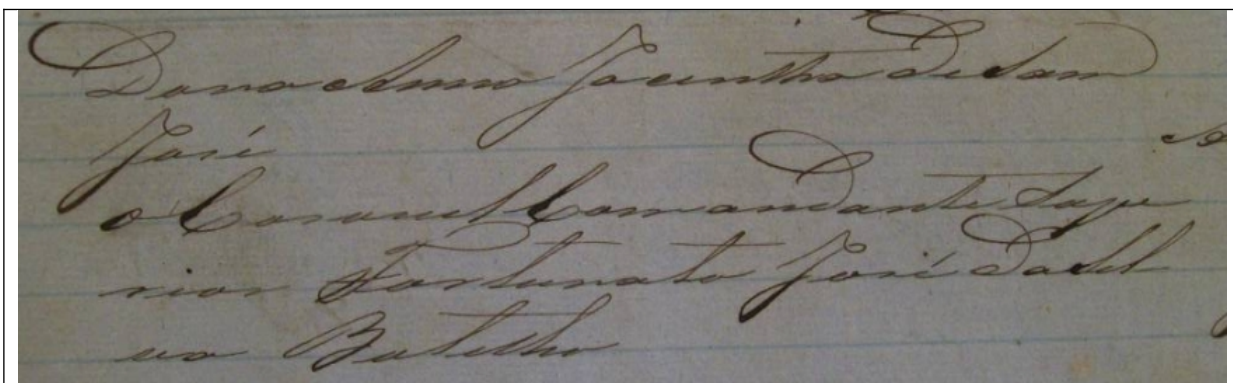 Dona Anna Jacintha de Sam
José
o Coronel Comandante Supe
rior Fortunato José da Sil
va Botelho